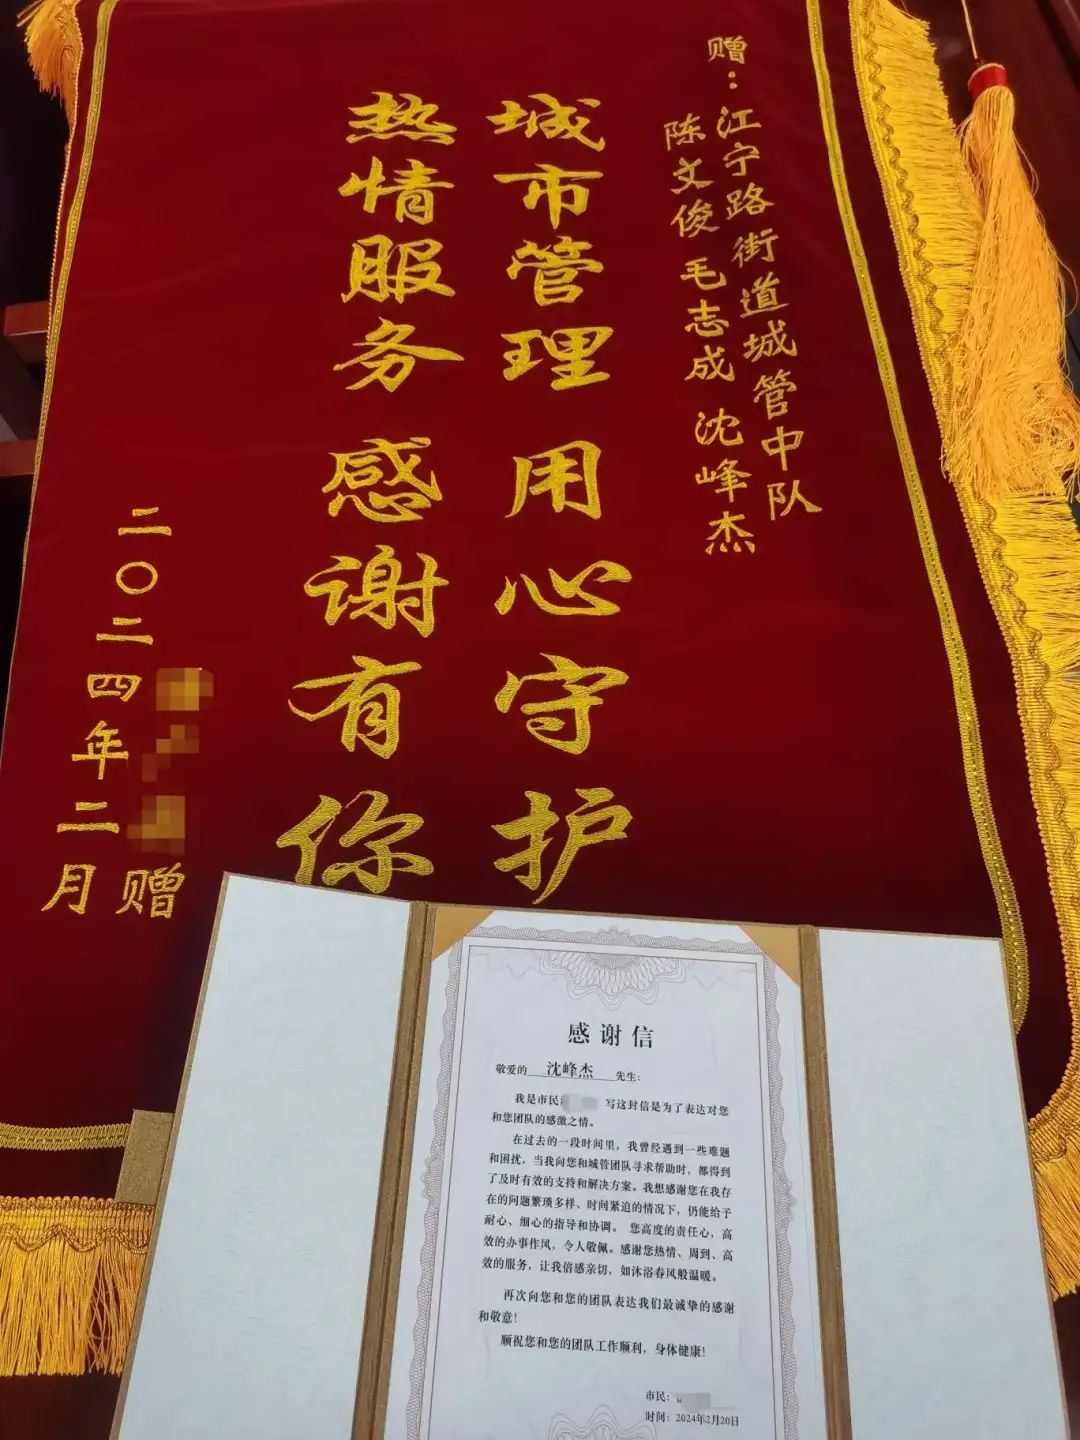 赠：江宁路街道城管中队
陈文俊 毛志成 沈峰杰
城市管理 用心守护
热情服务 感谢有你
赠
二〇二四年二月
感谢信
敬爱的 沈峰杰 先生：
我是市民 写这封信是为了表达对您
和您团队的感激之情。
在过去的一段时间里，我曾经遇到一些难题
和困扰，当我向您和城管团队寻求帮助时，都得到
了及时有效的支持和解决方案。我想感谢您在我存
在的问题繁琐多样、时间紧迫的情况下，仍能给予
耐心、细心的指导和协调。 您高度的责任心，高
效的办事作风，令人敬佩。感谢您热情、周到、高
效的服务，让我倍感亲切，如沐浴春风般温暖。
再次向您和您的团队表达我们最诚挚的感谢
和敬意！
顺祝您和您的团队工作顺利，身体健康！
市民：
时间：2024年2月20日